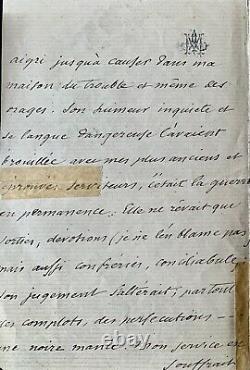 aigri jusqu'à causer dans ma
maison du trouble et même des
orages. Son humeur inquiète et
sa langue dangereuse l'avaient
brouillée avec mes plus anciens et
éprouvés serviteurs, c'était la guerre
en permanence. Elle ne rêvait que
sorties, dévotions (je ne l'en blâme pas
mais aussi confréries, conciliabules
son jugement s'altérait, partout
des complots, des persécutions --
une noire manie. Mon service en
souffrait